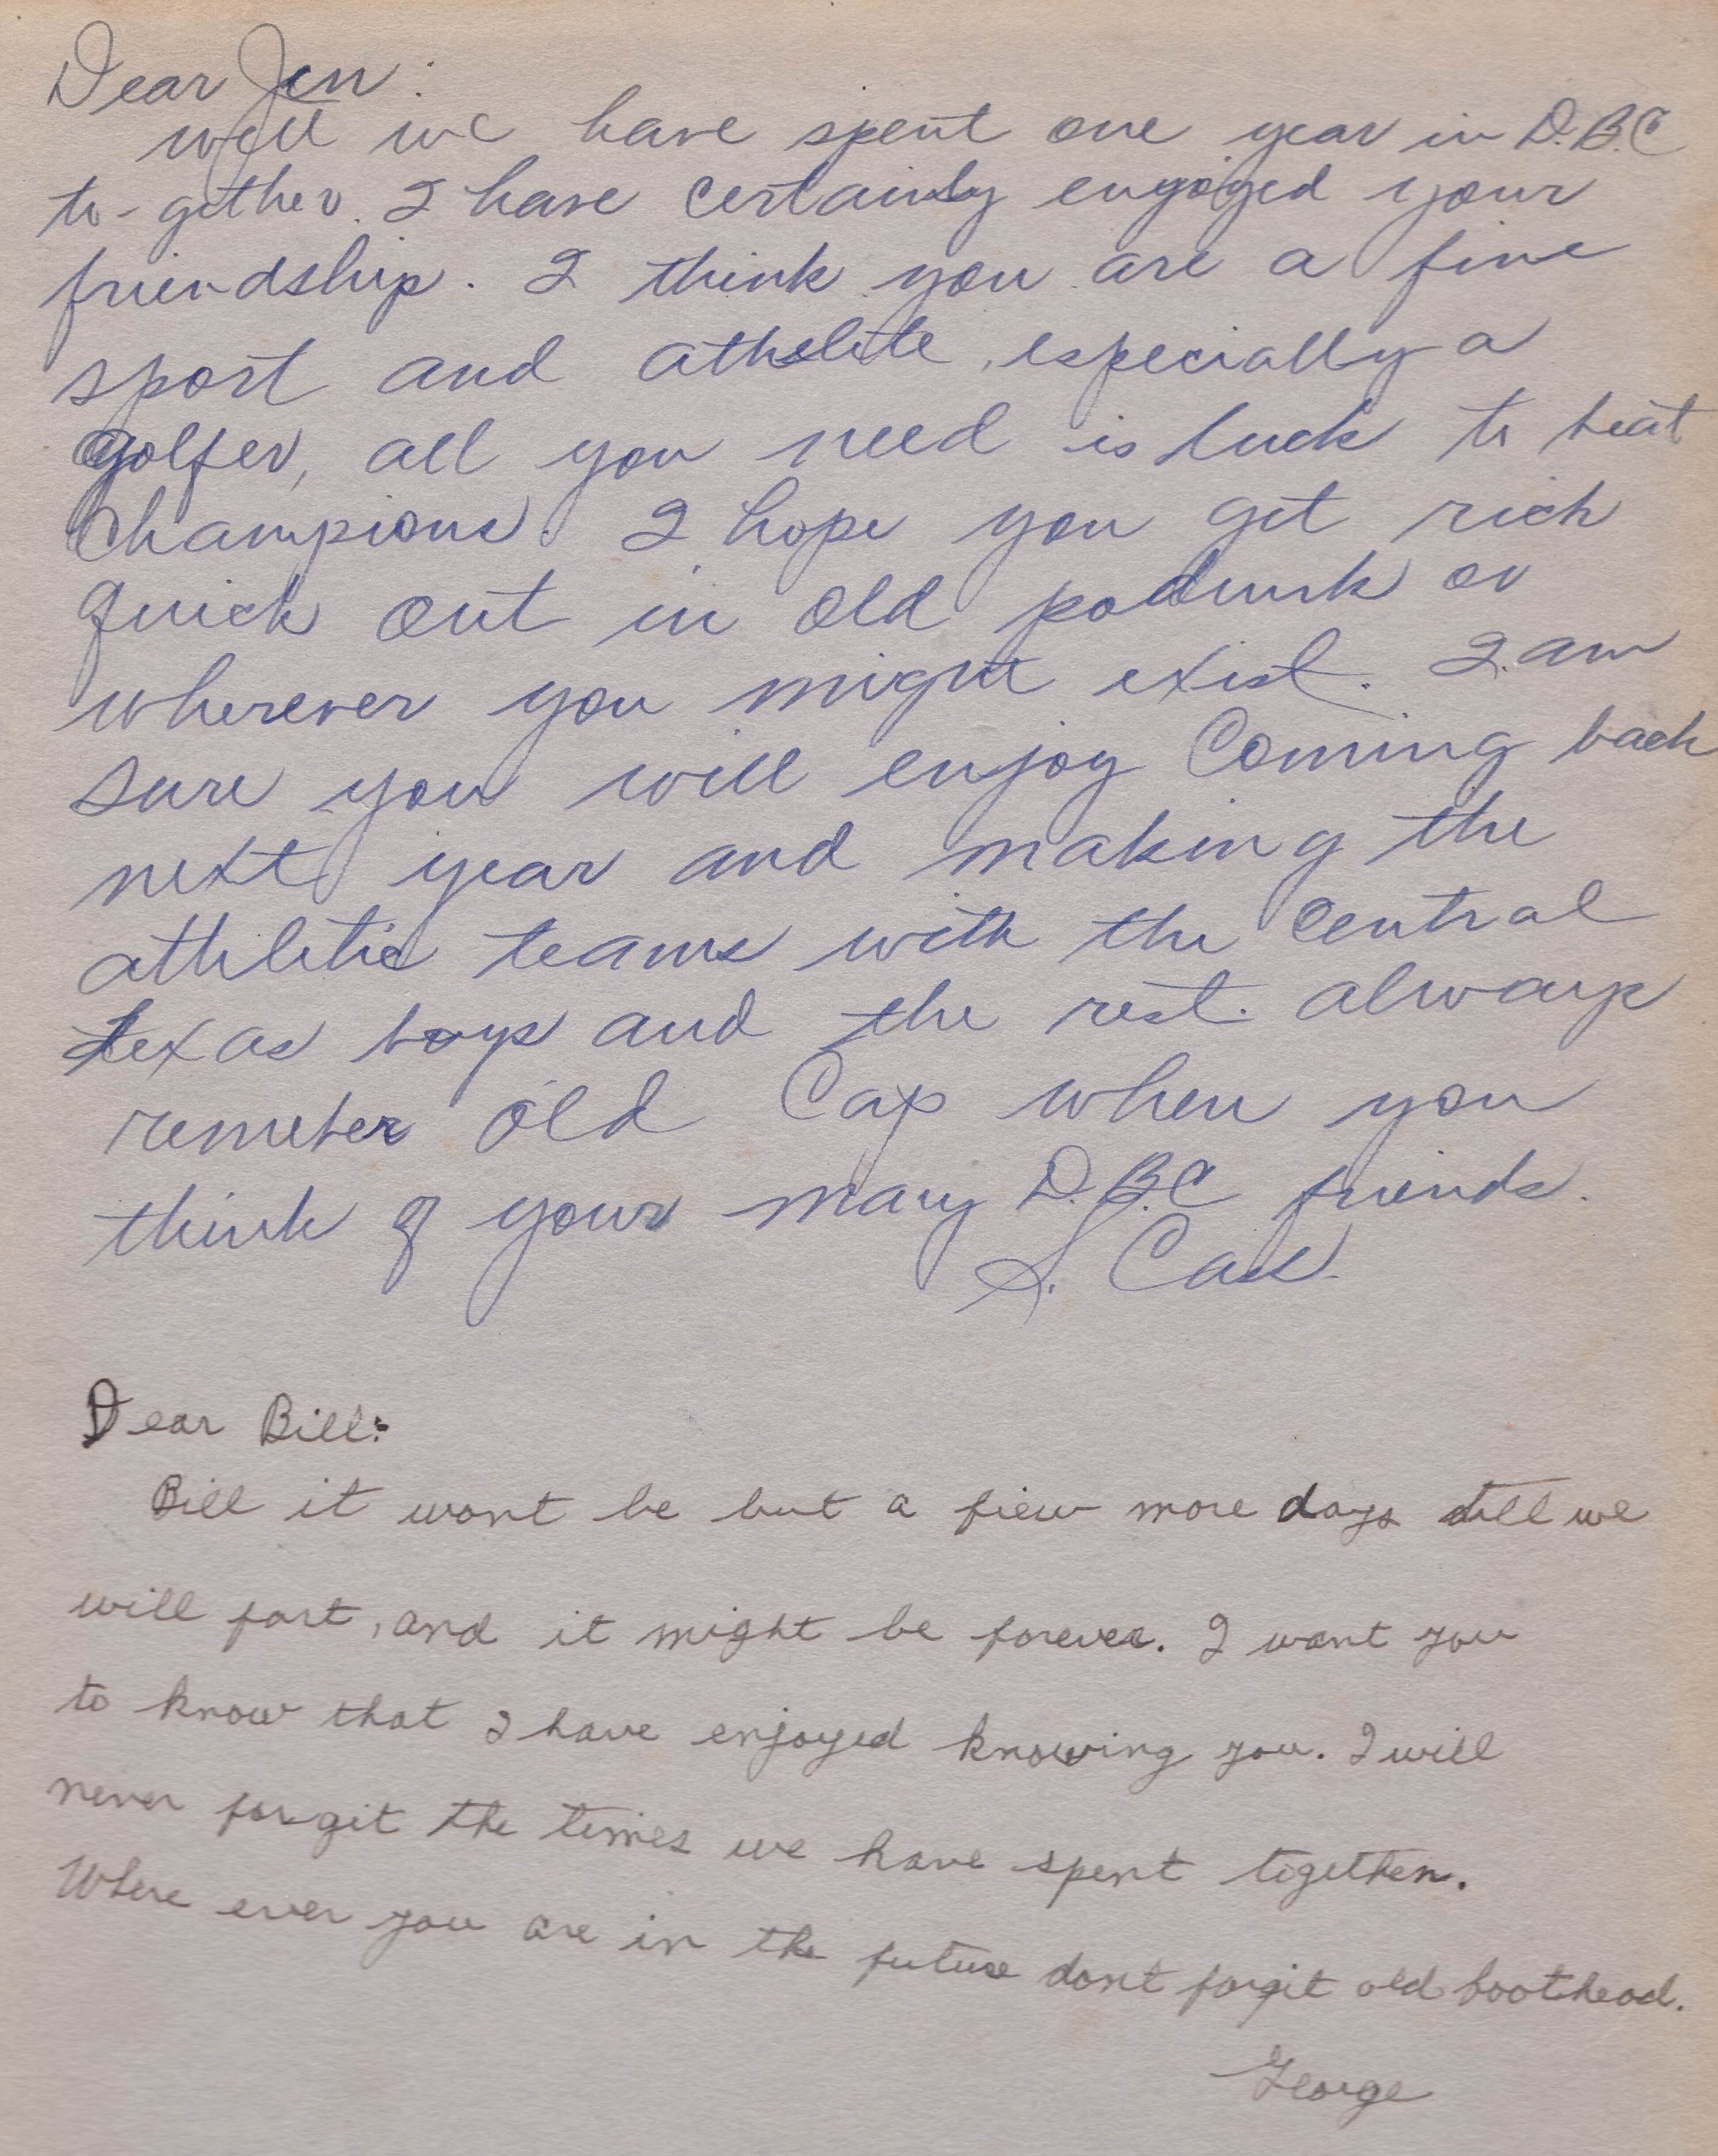 Dear Jen:
well we have spent one year in D.B.C
to-gether. I have certainly enjoyed your
friendship. I think you are a fine
sport and athelete, especially a
golfer, all you need is luck to beat
Champions. I hope you get rich
quick out in old podunk or
wherever you might exist. I am
sure you will enjoy Coming back
next year and making the
athletic teams with the Central
texas boys and the rest. always
remeber old Cap when you
think of your many D.B.C friends.
S.
Dear Bill:
Bill it wont be but a fiew more days till we
will part, and it might be forever. I want you
to know that I have enjoyed knowing you. I will
never forgit the times we have spent togethen.
Where ever you are in the future dont forgit old boothead.
George